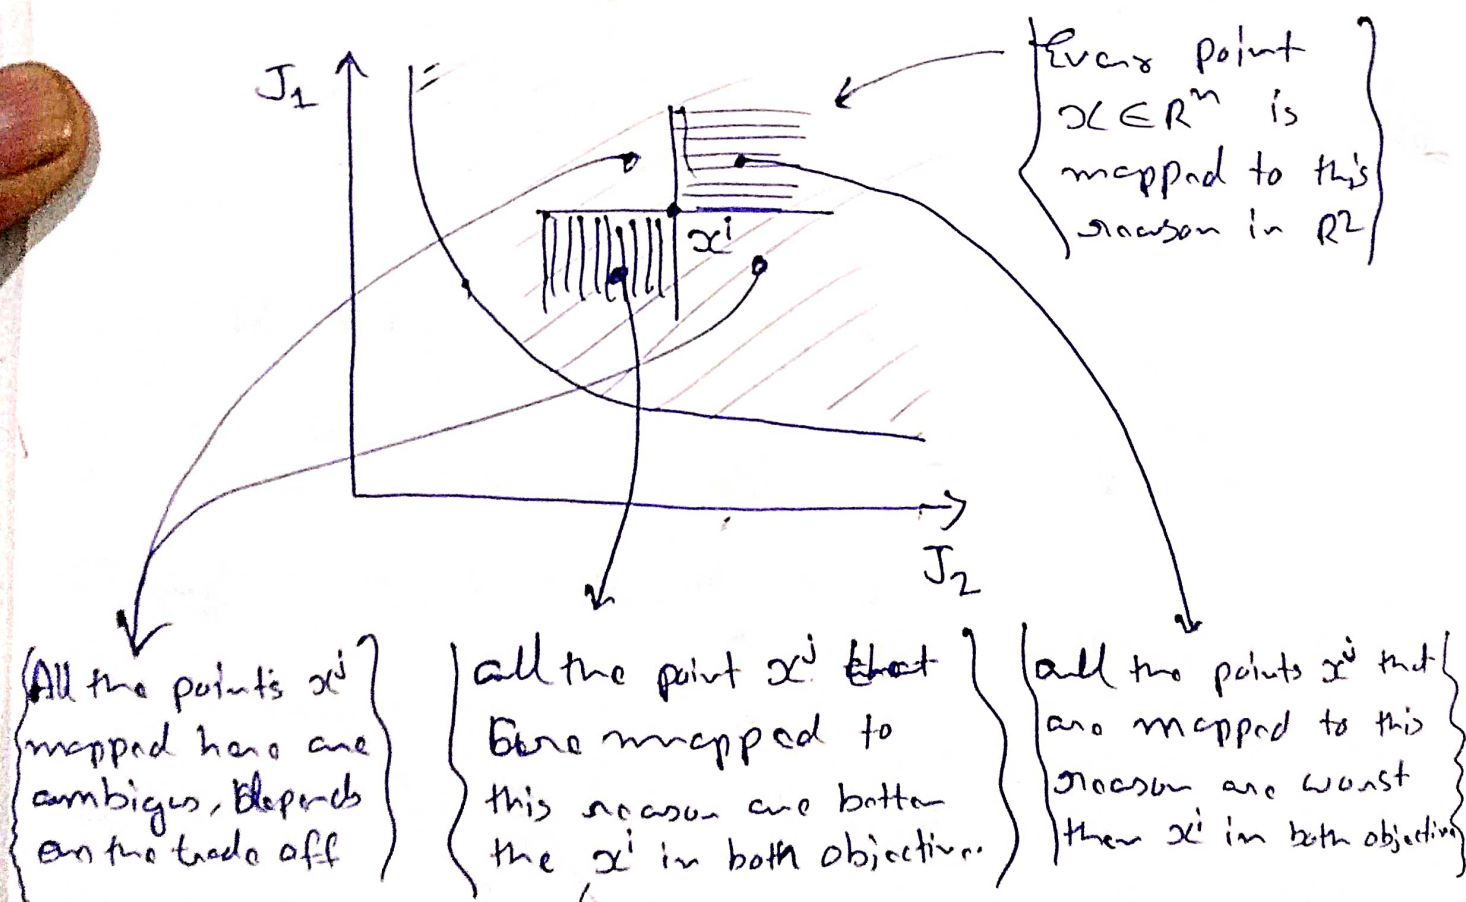 J1
Every point
x ∈ R^n is
mapped to this
reason in R2
x^i
J2
All the points x^j
mapped here are
ambigus, depends
on the trade off
all the point x^j that
are mapped to
this reason are better
the x^i in both objective.
all the points x^j that
are mapped to this
reason are worst
then x^i in both objective